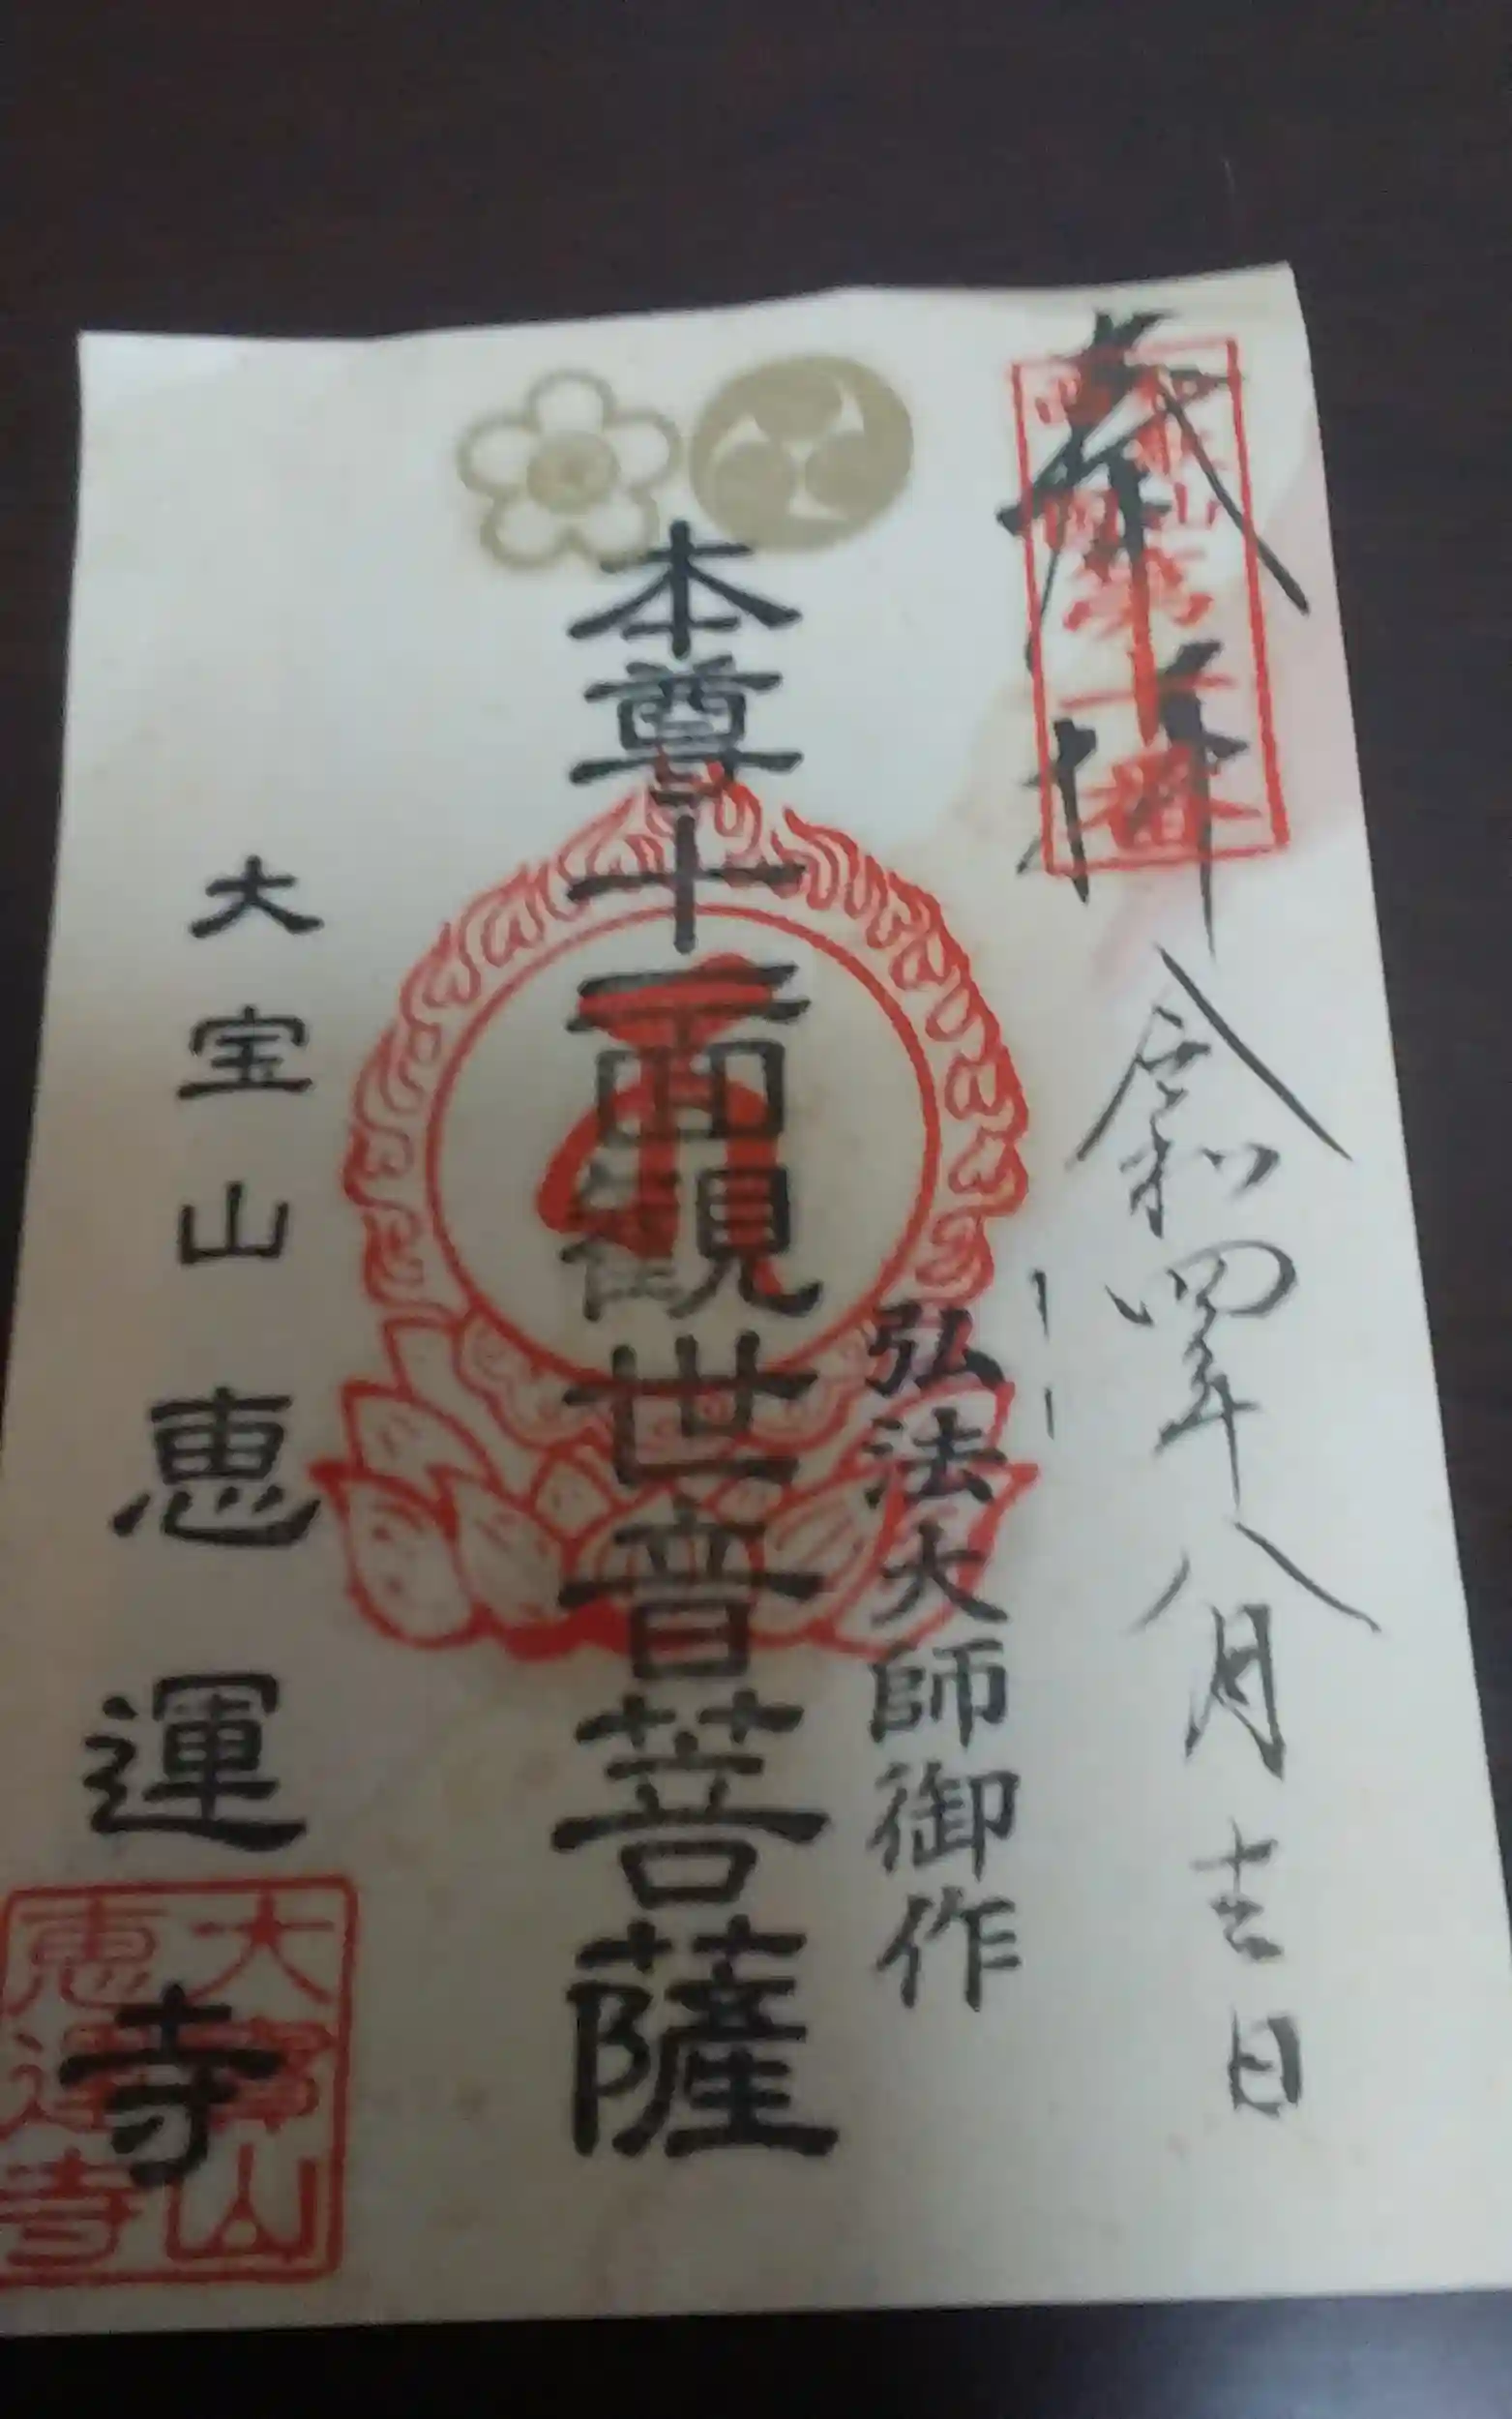 奉拝
令和四年八月吉日
弘法大師御作
本尊十一面観世音菩薩
大宝山恵運寺
大寳山
恵運寺